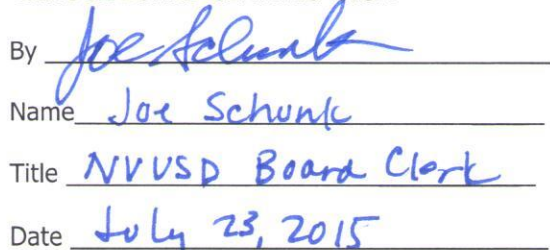 By Joe Schunk
Name Joe Schunk
Title NVUSD Board Clerk
Date July 23, 2015